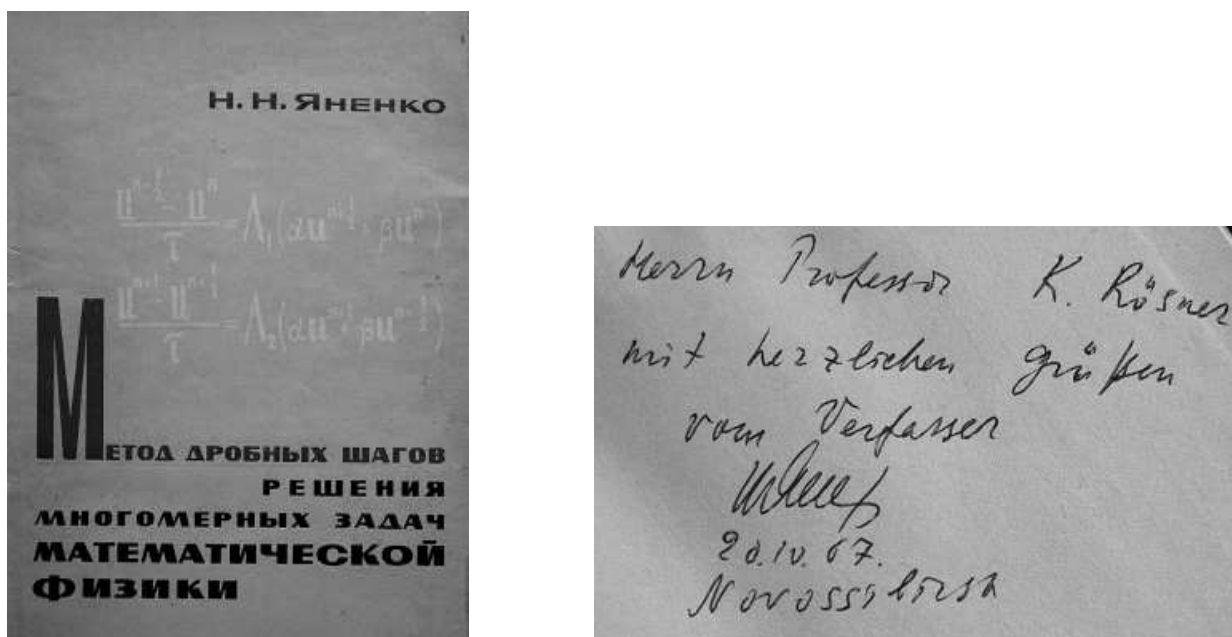 Н. Н. ЯНЕНКО
u^{n+1/2} - u^n / τ = Λ₁(αu^{n+1/2} + βu^n)
u^{n+1} - u^{n+1/2} / τ = Λ₂(αu^{n+1} + βu^{n+1/2})
МЕТОД ДРОБНЫХ ШАГОВ
РЕШЕНИЯ
МНОГОМЕРНЫХ ЗАДАЧ
МАТЕМАТИЧЕСКОЙ
ФИЗИКИ
Herrn Professor K. Rösner
mit herzlichen Grüßen
vom Verfasser
20.IV.67.
Novossibirsk